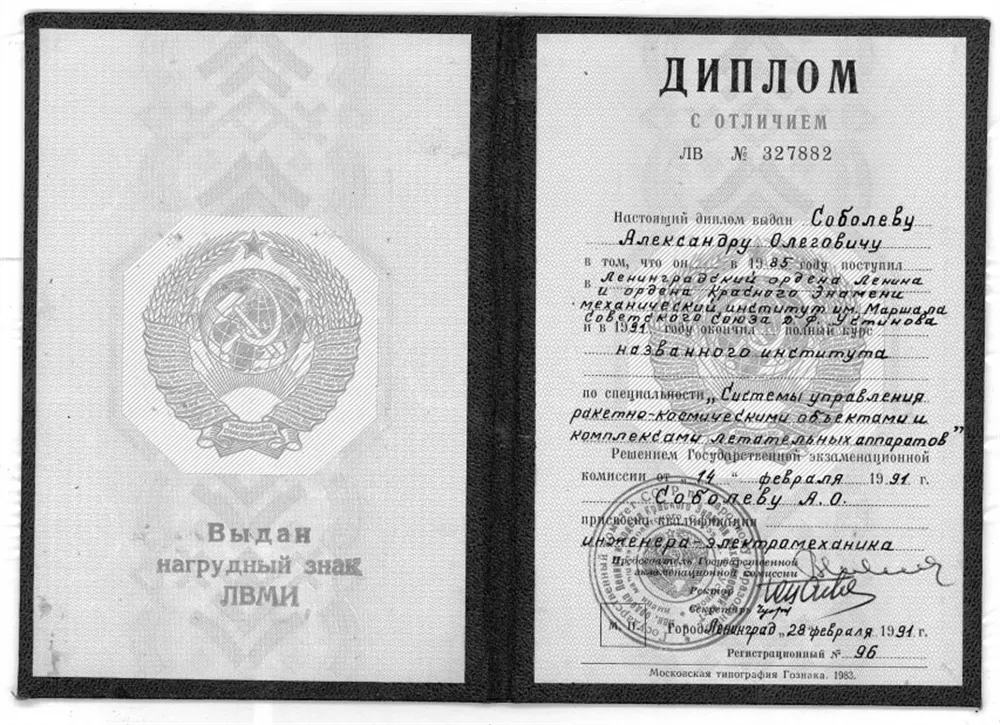 Выдан
нагрудный знак
ЛВМИ
ДИПЛОМ
С ОТЛИЧИЕМ
ЛВ № 327882
Настоящий диплом выдан Соболеву
Александру Олеговичу
в том, что он в 1985 году поступил
в Ленинградский ордена Ленина
и ордена Красного Знамени
механический институт им. Маршала
Советского Союза Д.Ф. Устинова
и в 1991 году окончил полный курс
названного института
по специальности „Системы управления
ракетно-космическими объектами и
комплексами летательных аппаратов"
Решением Государственной экзаменационной
комиссии от „14" февраля 1991 г.
Соболеву А.О.
присвоена квалификация
инженера-электромеханика
Председатель Государственной
экзаменационной комиссии
Ректор
Секретарь
М. П. Город Ленинград „28 февраля 1991 г.
Регистрационный № 96
Московская типография Гознака. 1983.